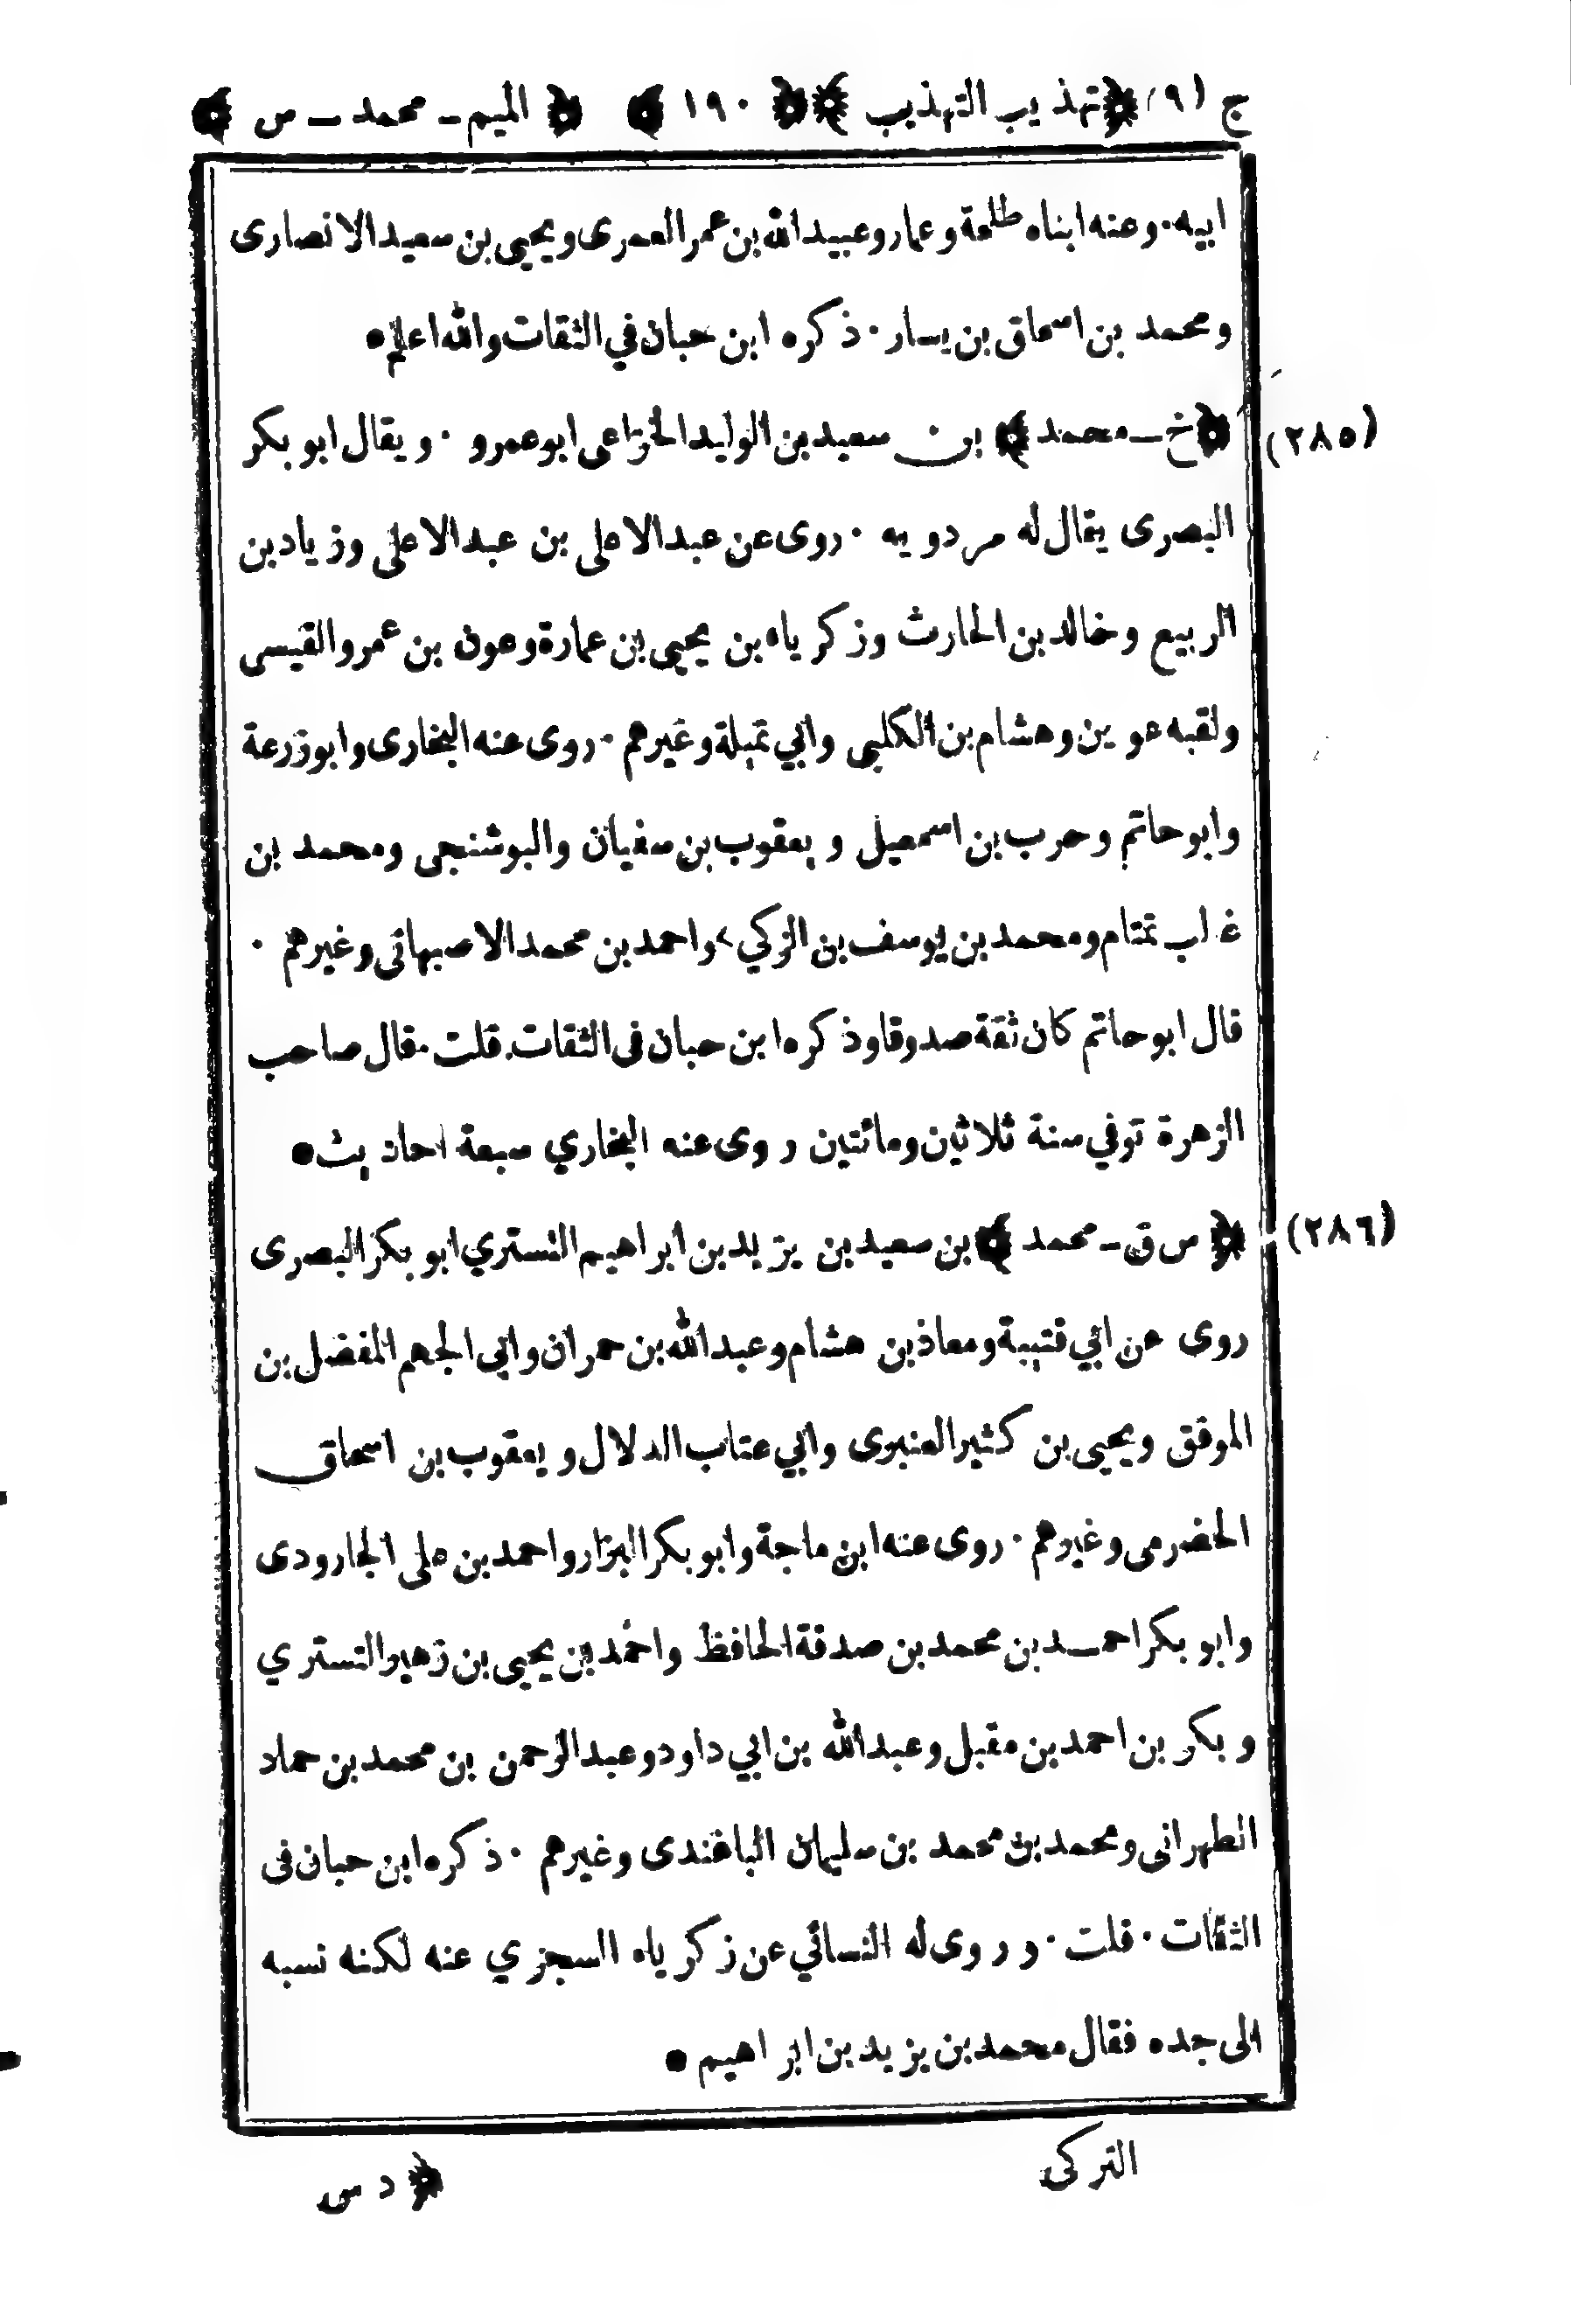 ج (٩) ﴿ تهذيب التهذيب ﴾ ﴿ ١٩٠ ﴾ ﴿ الميم ـ محمد ـ س ﴾
ابيه ٠ وعنه ابناه طلحة وعمار وعبيد الله بن عمر العمرى ويحيى بن سعيد الانصارى
ومحمد بن اسحاق بن يسار ٠ ذكره ابن حبان في الثقات والله اعلم ●
(٢٨٥) ﴿ خ ـ محمد ﴾ بن سعيد بن الوليد الخزاعى ابو عمرو ٠ ويقال ابو بكر
البصرى يقال له مردويه ٠ روى عن عبد الاعلى بن عبد الاعلى وزياد بن
الربيع وخالد بن الحارث وزكرياء بن يحيى بن عمارة وعون بن عمرو القيسى
ولقبه عوين وهشام بن الكلبي وابي تميلة وغيرهم ٠ روى عنه البخارى وابو زرعة
وابو حاتم وحرب بن اسمعيل ويعقوب بن سفيان والبوشنجى ومحمد بن
غالب تمتام ومحمد بن يوسف بن الزكي واحمد بن محمد الاصبهانى وغيرهم ٠
قال ابو حاتم كان ثقة صدوقا وذكره ابن حبان فى الثقات ٠ قلت ٠ قال صاحب
الزهرة توفي سنة ثلاثين ومائتين روى عنه البخاري سبعة احاديث ●
(٢٨٦) ﴿ س ق ـ محمد ﴾ بن سعيد بن يزيد بن ابراهيم التستري ابو بكر البصرى
روى عن ابي قتيبة ومعاذ بن هشام وعبد الله بن حمران وابى الجهم المفضل بن
الموفق ويحيى بن كثير العنبرى وابي عتاب الدلال ويعقوب بن اسحاق
الحضرمى وغيرهم ٠ روى عنه ابن ماجة وابو بكر البزار واحمد بن على الجارودى
وابو بكر احمد بن محمد بن صدقة الحافظ واحمد بن يحيى بن زهير التستري
وبكر بن احمد بن مقبل وعبد الله بن ابي داود وعبد الرحمن بن محمد بن حماد
الطهرانى ومحمد بن محمد بن سليمان الباغندى وغيرهم ٠ ذكره ابن حبان فى
الثقات ٠ قلت ٠ وروى له النسائي عن زكرياء السجزي عنه لكنه نسبه
الى جده فقال محمد بن يزيد بن ابراهيم ●
التركى ﴿ د س